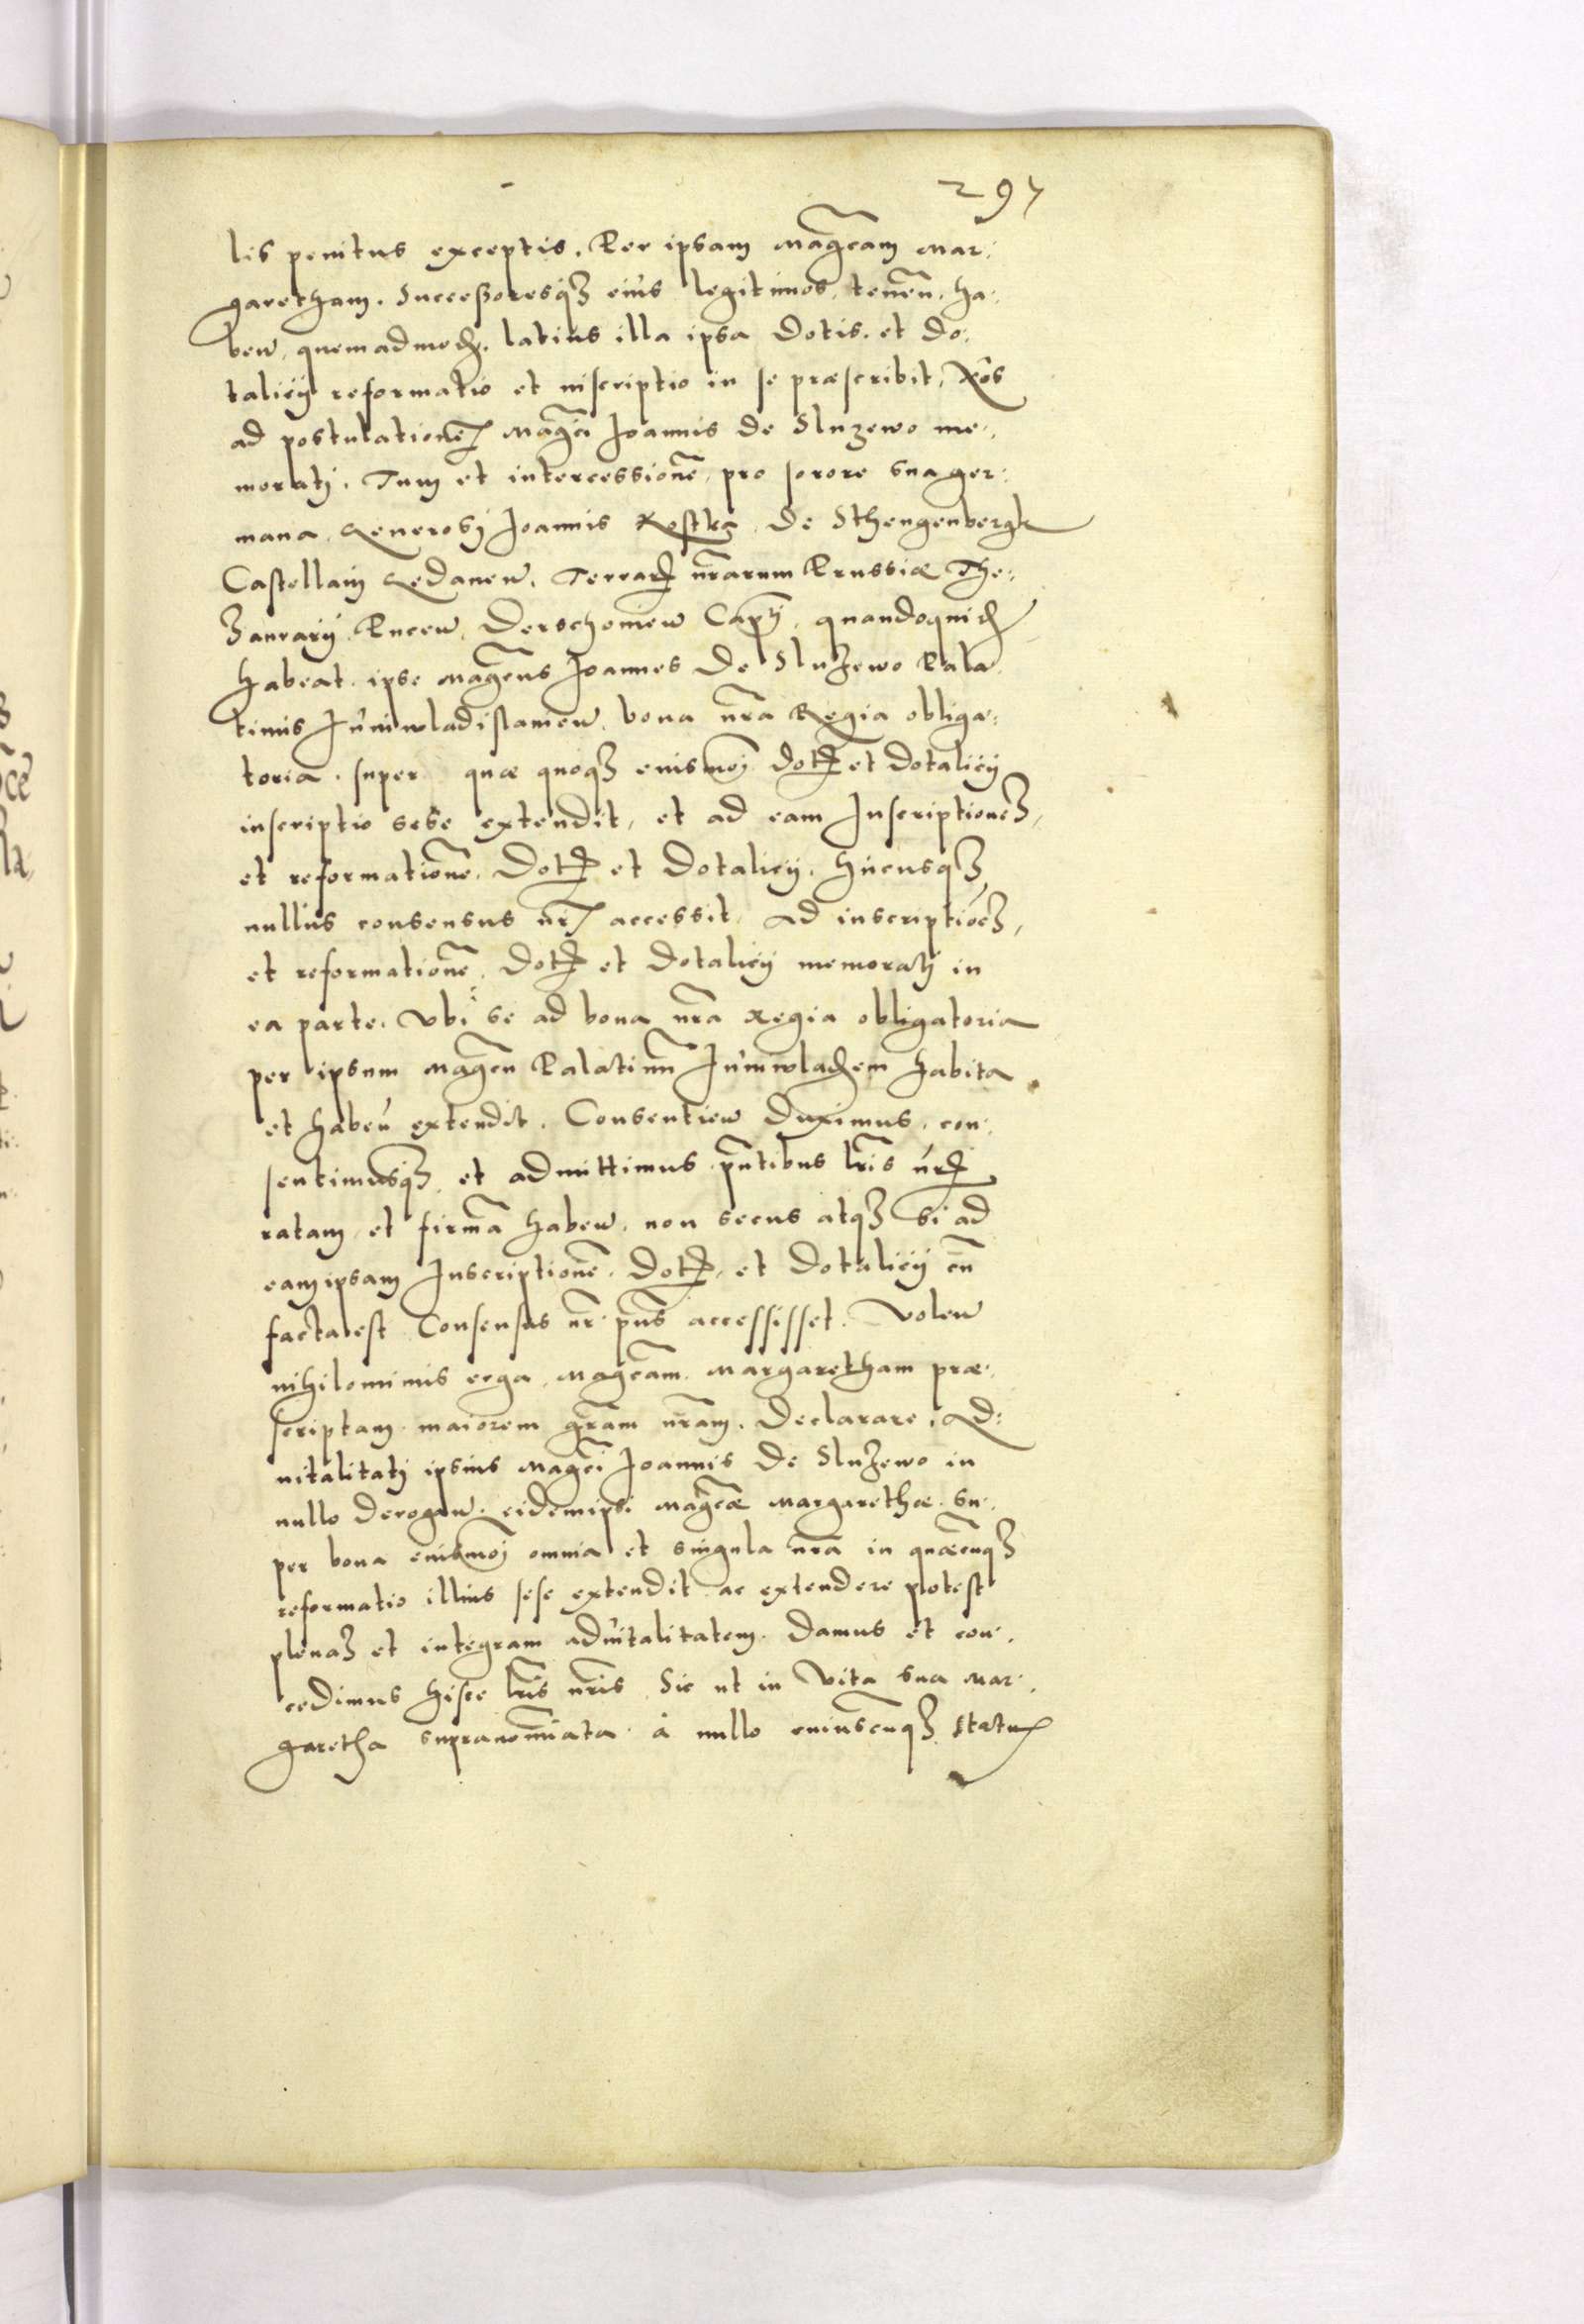 297
lis penitus exceptis. Per ipsam Magcam Mar:
garetham. Successoresq3 eius legitimos, tenen. ha:
ben, quemadmod. latius illa ipsa Dotis. et Do:
talicij reformatio et inscriptio in se præscribit, Nos
ad postulationem Magci Joannis de Sluzewo me:
morati. Tum et intercessione, pro sorore sua ger:
mana, Generosi Joannis Kostka de Sthengenbergk
Castellani Gedanen. Terrar nrarum Prussiæ The:
zaurarij Pucen. Derschouien Capti, quandoquid
habeat. ipse Magcus Joannes de Sluzewo Pala
tinus Juniwladislauien. bona nra Regia obliga:
toria. super quæ quoq3 eiusmoi Dot et dotalicij
inscriptio sese extendit, et ad eam Inscriptione3,
et reformatione. Dot et Dotalicij. hucusq3
nullus consensus nr accessit. Ad inscriptioe3,
et reformatione, Dot et Dotalicij memorati in
ea parte. Vbi se ad bona nra regia obligatoria
per ipsum Magcu Palatinu Juniwladem habita
et haben extendit. Consentien Duximus, con:
sentimusq3 et admittimus pntibus lris nr
ratam et firma haben, non secus atq3 si ad
eam ipsam Inscriptione. Dot, et Dotalicij cu
facta est Consensus nr pns accessisset. Volen
nihilominus erga Magcam. Margaretham præ:
scriptam maiorem gram nram. Declarare, Ad:
uitalitati ipsius Magci Joannis de Sluzewo in
nullo derogan. eidem ipsi Magcæ Margarethæ. su:
per bona eiusmoi omnia et singula nra in quæcuq3
reformatio illius sese extendit ac extendere potest
plena3 et integram aduitalitatem. Damus et con:
cedimus hisce lris nris. Sic ut in vita sua Mar:
garetha supranominata à nullo cuiuscuq3 status